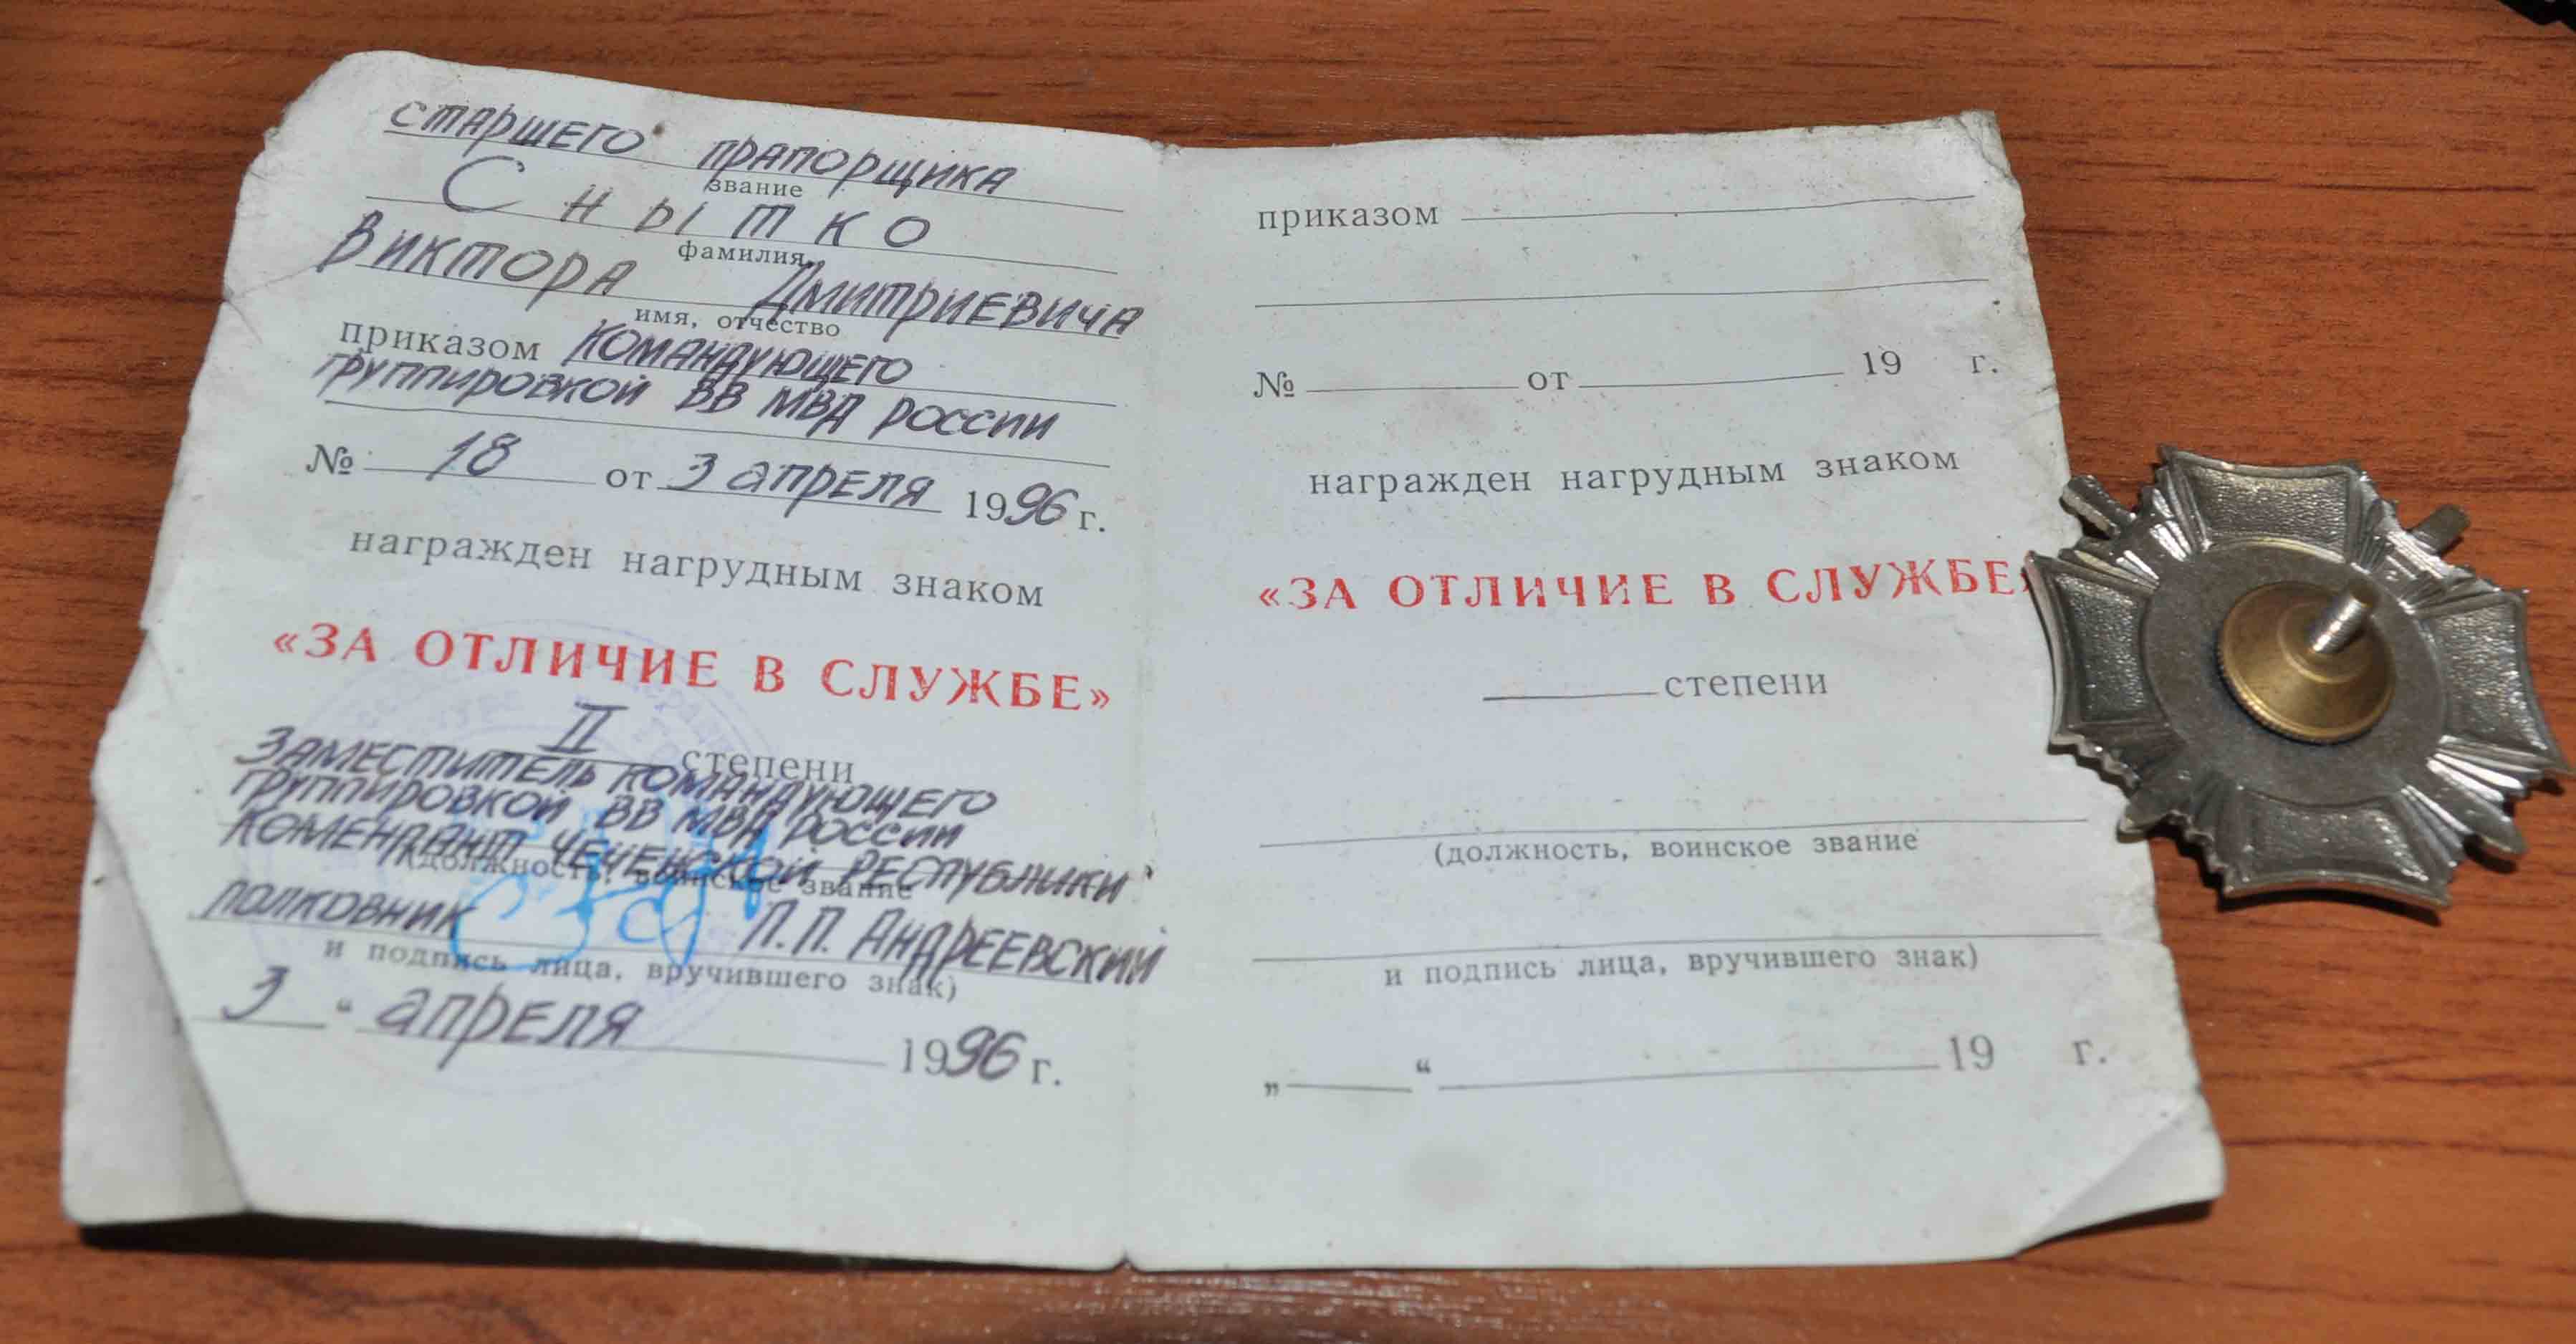 старшего прапорщика
звание
Снытко
фамилия
Виктора Дмитриевича
имя, отчество
приказом командующего
группировкой ВВ МВД России
№ 18 от 3 апреля 1996 г.
награжден нагрудным знаком
«ЗА ОТЛИЧИЕ В СЛУЖБЕ»
II степени
Заместитель командующего
группировкой ВВ МВД России
комендант Чеченской Республики
(должность, воинское звание
полковник П.П. Андреевский
и подпись лица, вручившего знак)
3 “ апреля 1996 г.
приказом
№ от 19 г.
награжден нагрудным знаком
«ЗА ОТЛИЧИЕ В СЛУЖБЕ»
степени
(должность, воинское звание
и подпись лица, вручившего знак)
„ “ 19 г.